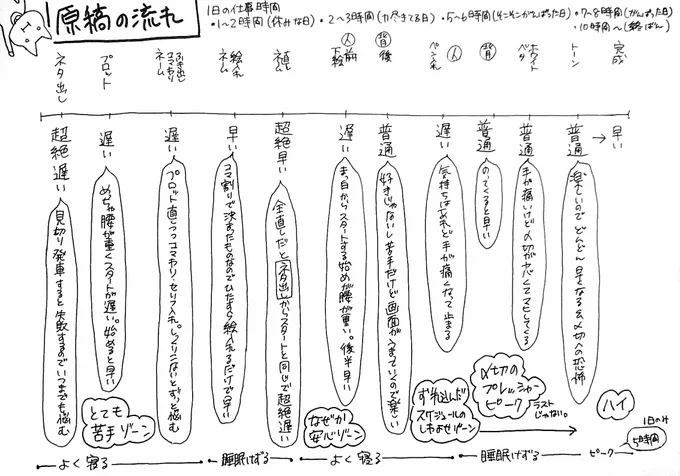 原稿の流れ
1日の仕事時間
・1〜2時間(休みな日)・2〜3時間(力尽きてる日)・5〜6時間(そこそこがんばった日)・7〜8時間(がんばった日)
・10時間〜(終ばん)
ネタ出し
プロット
ふきだし
コマわり
ネーム
絵入れ
ネーム
直し
ネーム
人
前
下絵
背
後
ペン入れ
人
背
ホワイト
ベタ
トーン
完成
超絶遅い
遅い
遅い
早い
超絶早い
遅い
普通
遅い
普通
普通
普通
→早い
見切り発車すると失敗するのでいつまでも悩む
めちゃ腰が重くスタートが遅い。始めると早い
プロット直しつつコマわり・セリフ入れ。しっくりこないとずっと悩む
コマ割りで決まったものなのでひたすら絵入れるだけで早い
全直しだとネタ出しからスタートと同じで超絶遅い
まっ白からスタートする始めが腰が重い。後半早い
好きじゃないし苦手だけど画面がうまっていくので楽しい
気持ちはあれど手が痛くなって止まる
のってくると早い
手が痛いけど〆切がヤバくてマヒしてくる
楽しいのでどんどん早くなる&〆切への恐怖
とても
苦手ゾーン
なぜか
安心ゾーン
ずれ込んだ
スケジュールの
しわよせゾーン
〆切の
プレッシャー
ピーク
ラスト
じゃない。
ハイ
1日のみ
5時間
よく寝る
睡眠けずる
よく寝る
睡眠けずる
ピーク